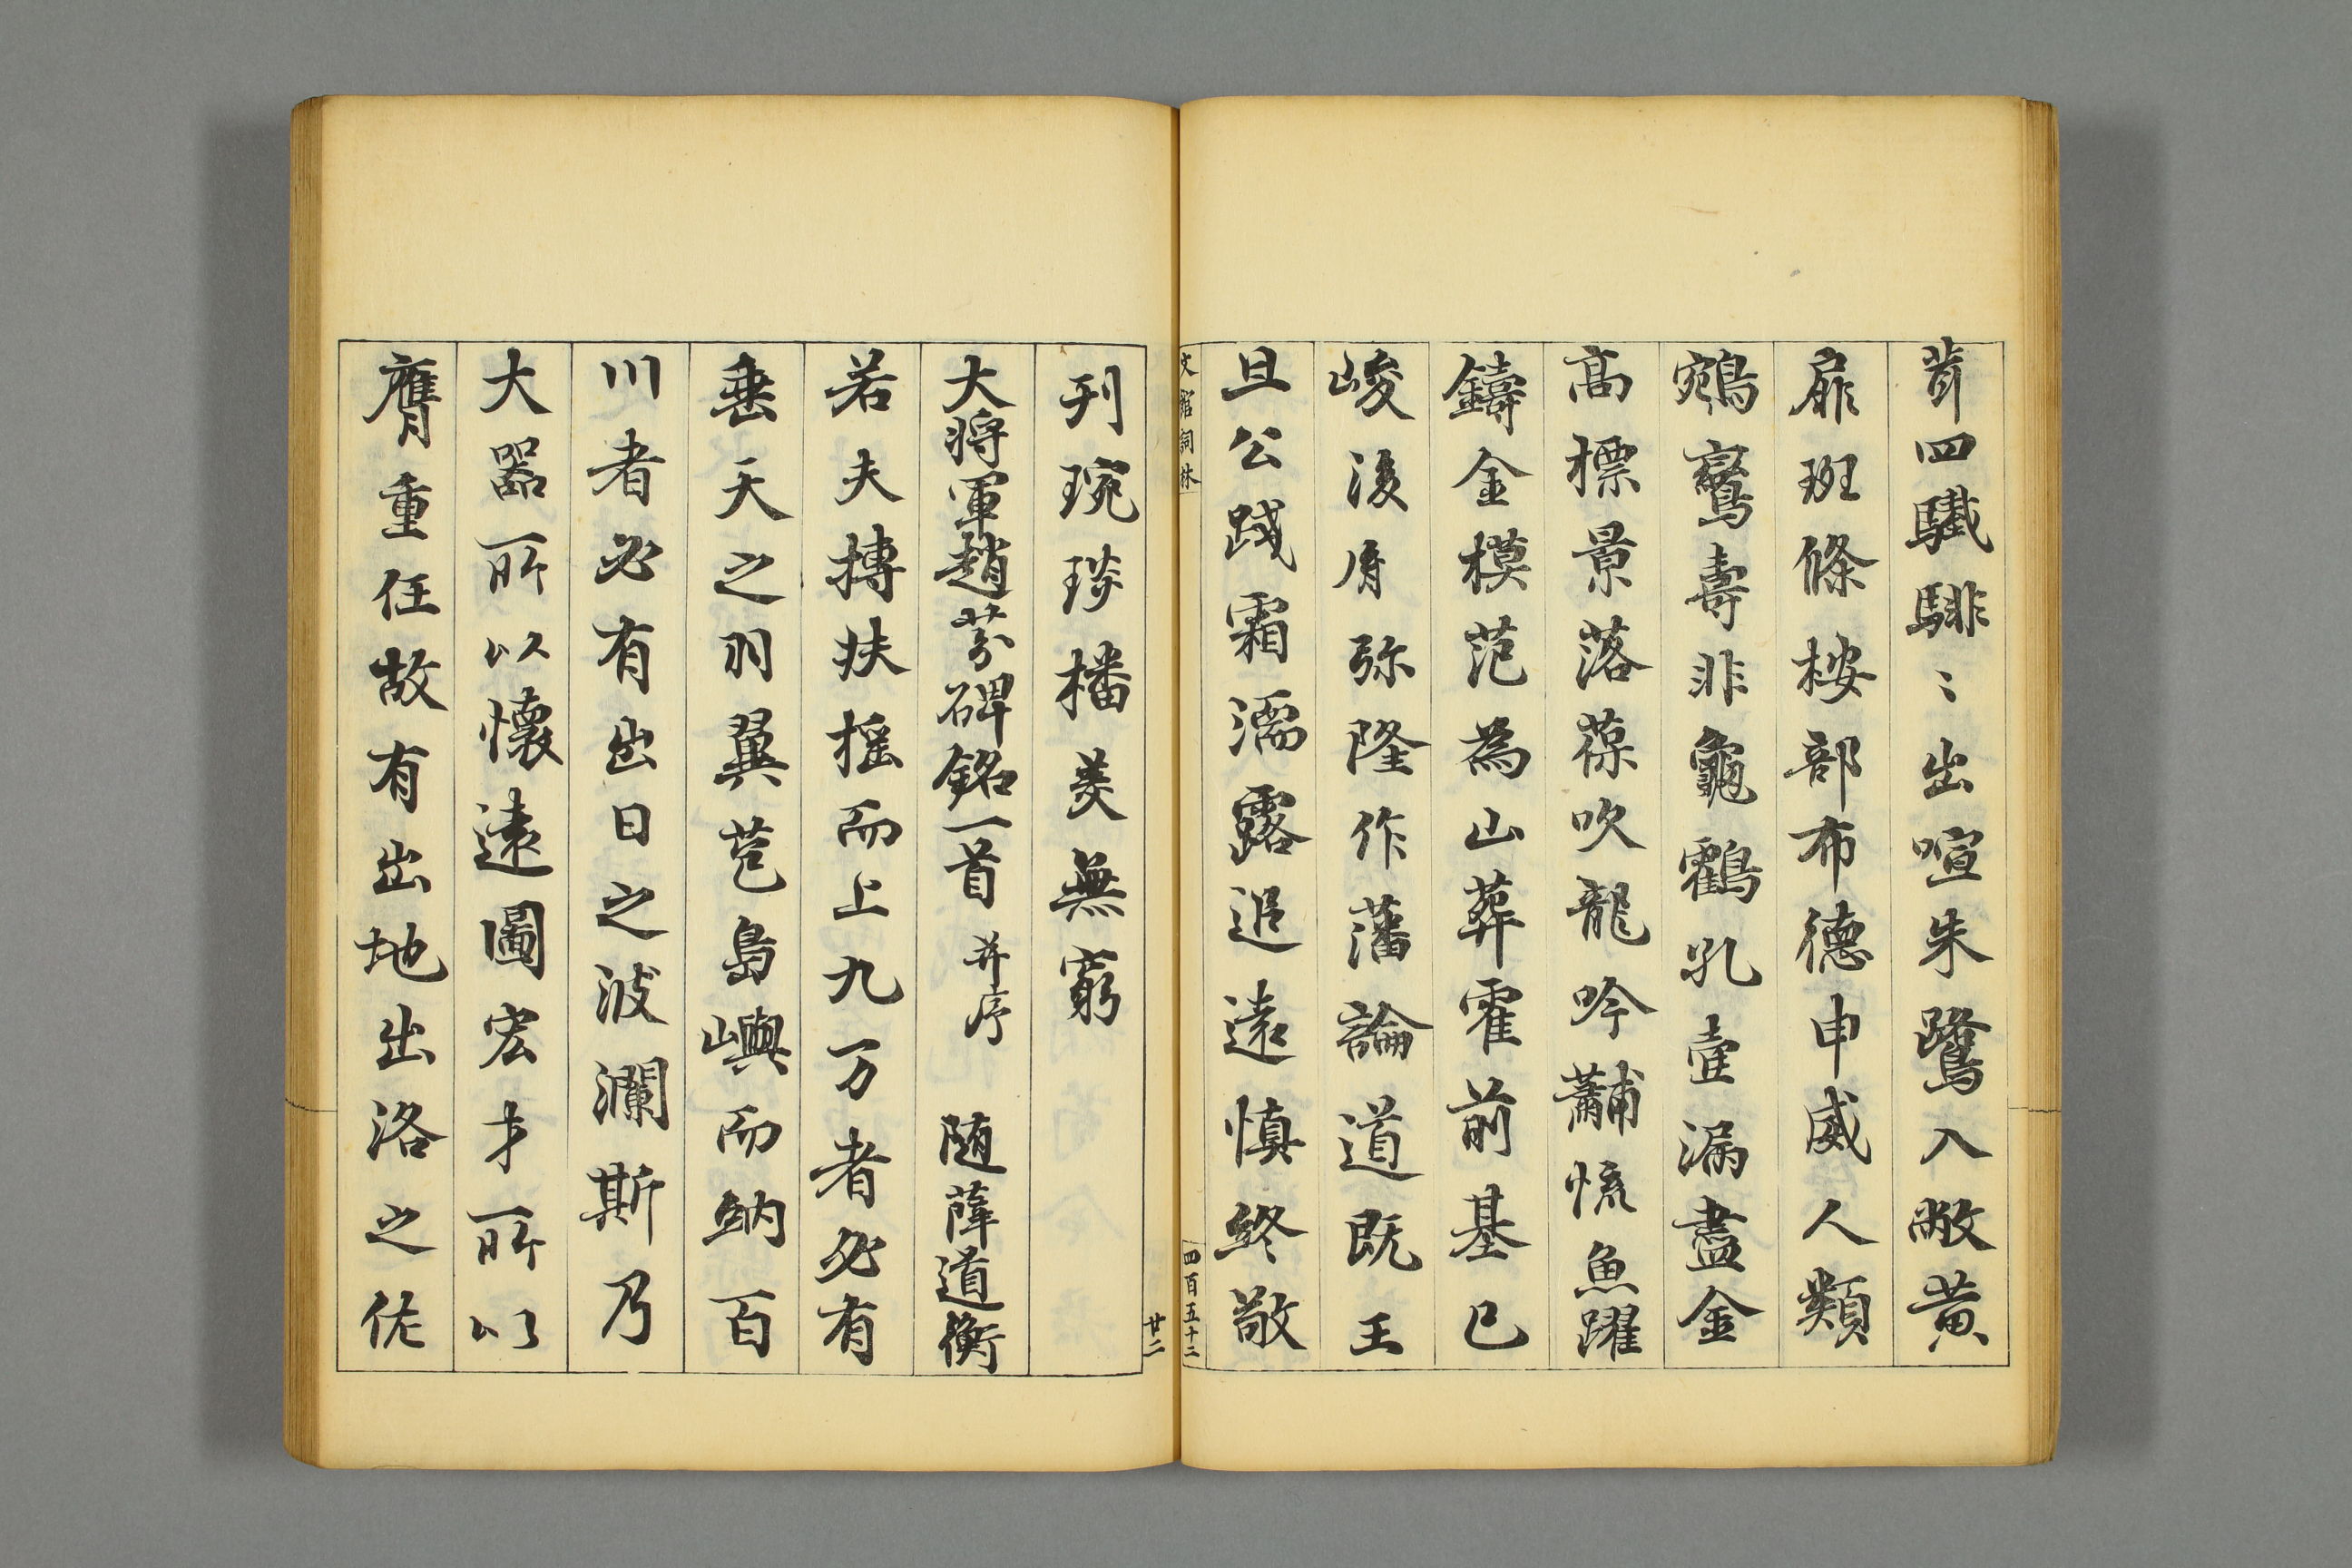 四驖騑〻出喧朱鷺入敞黄
扉班條桉部布德申威人類
鵷鸞壽非龜鶴孔壷漏盡金
高標景落葆吹龍吟黼慌魚躍
鑄金模范為山葬霍前基已
峻後弥隆作藩論道既王
且公踐霜濡露追遠慎終敬
文館詞林 四百五十二
廿二
刊琬琰播美無窮
大將軍趙芬碑銘一首 并序 随薛道衡
若夫摶扶摇而上九万者必有
垂天之羽翼苞島嶼而納百
川者必有出日之波瀾斯乃
大器所以懷遠圖宏才所以
膺重任故有出地出洛之佐